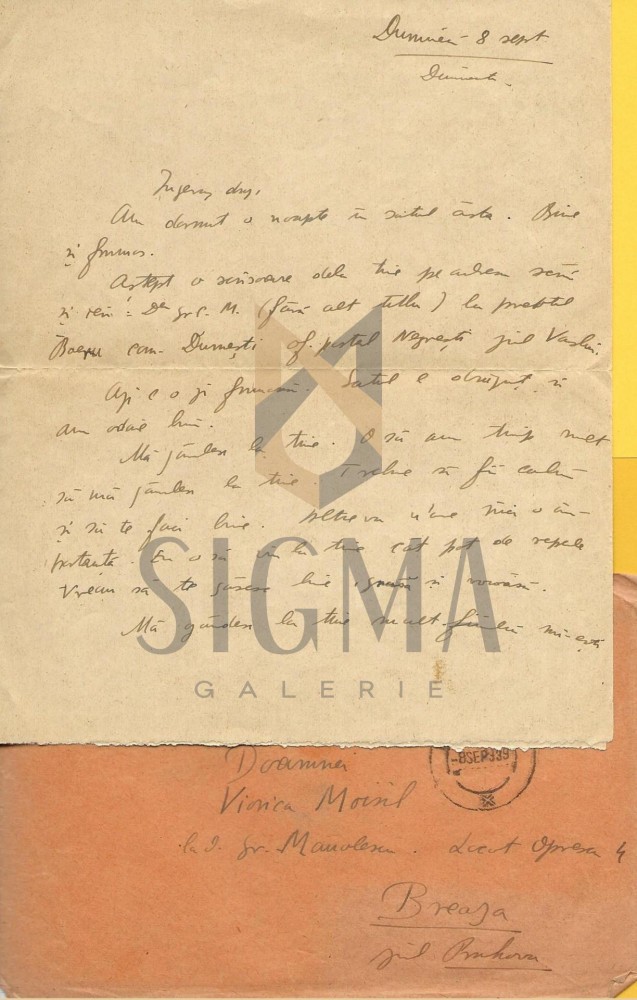 Duminică 8 sept
Dumești
Îngeraș drag,
Am dormit o noapte în satul ăsta. Bine
și frumos.
Aștept o scrisoare dela tine pe adresa
și : Dlui Gr. C. M. (fără alt titlu) la preotul
com. Dumești of. postal Negrești jud Vaslui.
Azi e o zi frumoasă. Satul e drăguț și
am odaie bună.
Mă gândesc la tine. O să am timp mult
să mă gândesc la tine. Trebue să fii calmă
și să te faci bine. Altceva n'are nici o im-
portanță. Eu o să vin la tine cât pot de repede
Vreau să te găsesc bine, grasă și voioasă.
Mă gândesc la tine mult fiindcă mi-ești
SIGMA
GALERIE
-8SEP939
Doamnei
Viorica Moisil
la D. Gr. Manolescu. Locot Oprescu 4
Breaza
jud Prahova